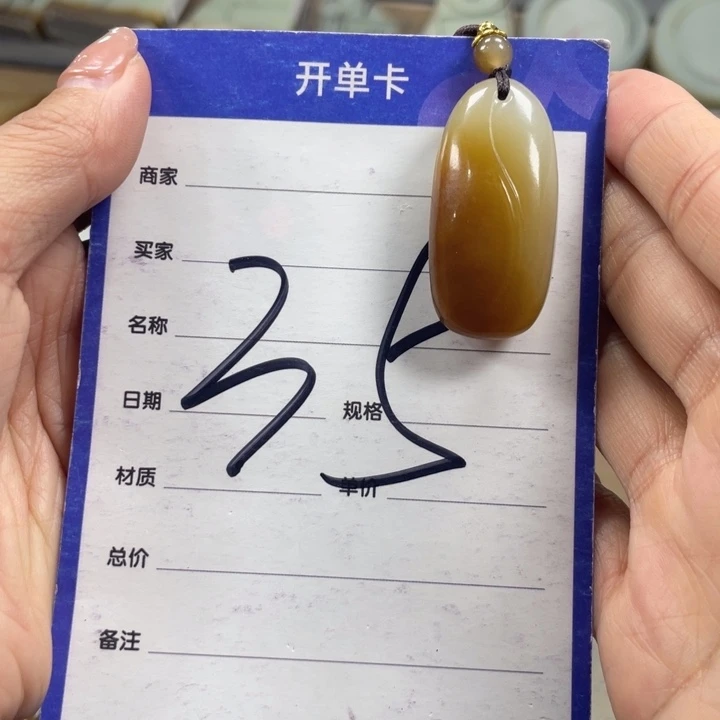 开单卡
商家
买家
名称
日期 规格
材质 单价
总价
备注
35